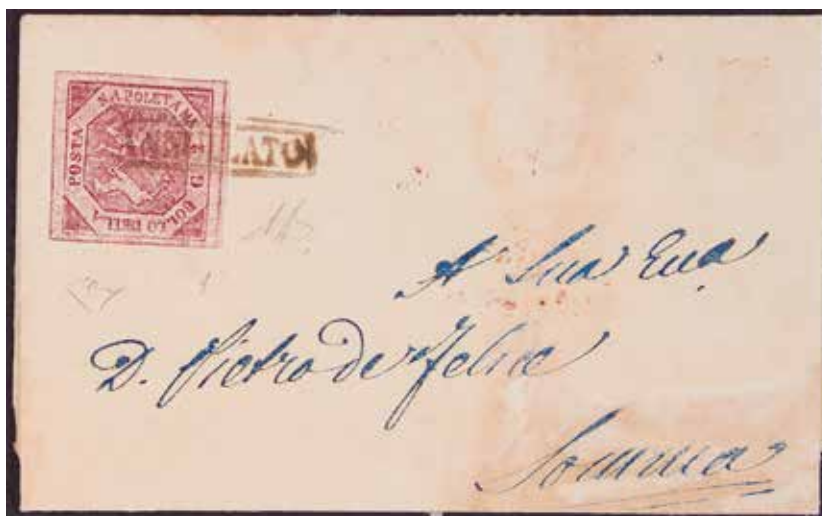 BOLLO DELLA POSTA NAPOLETANA G 2
ANNULLATO
A Sua Ecc.a
D. Pietro de Felice
Somma